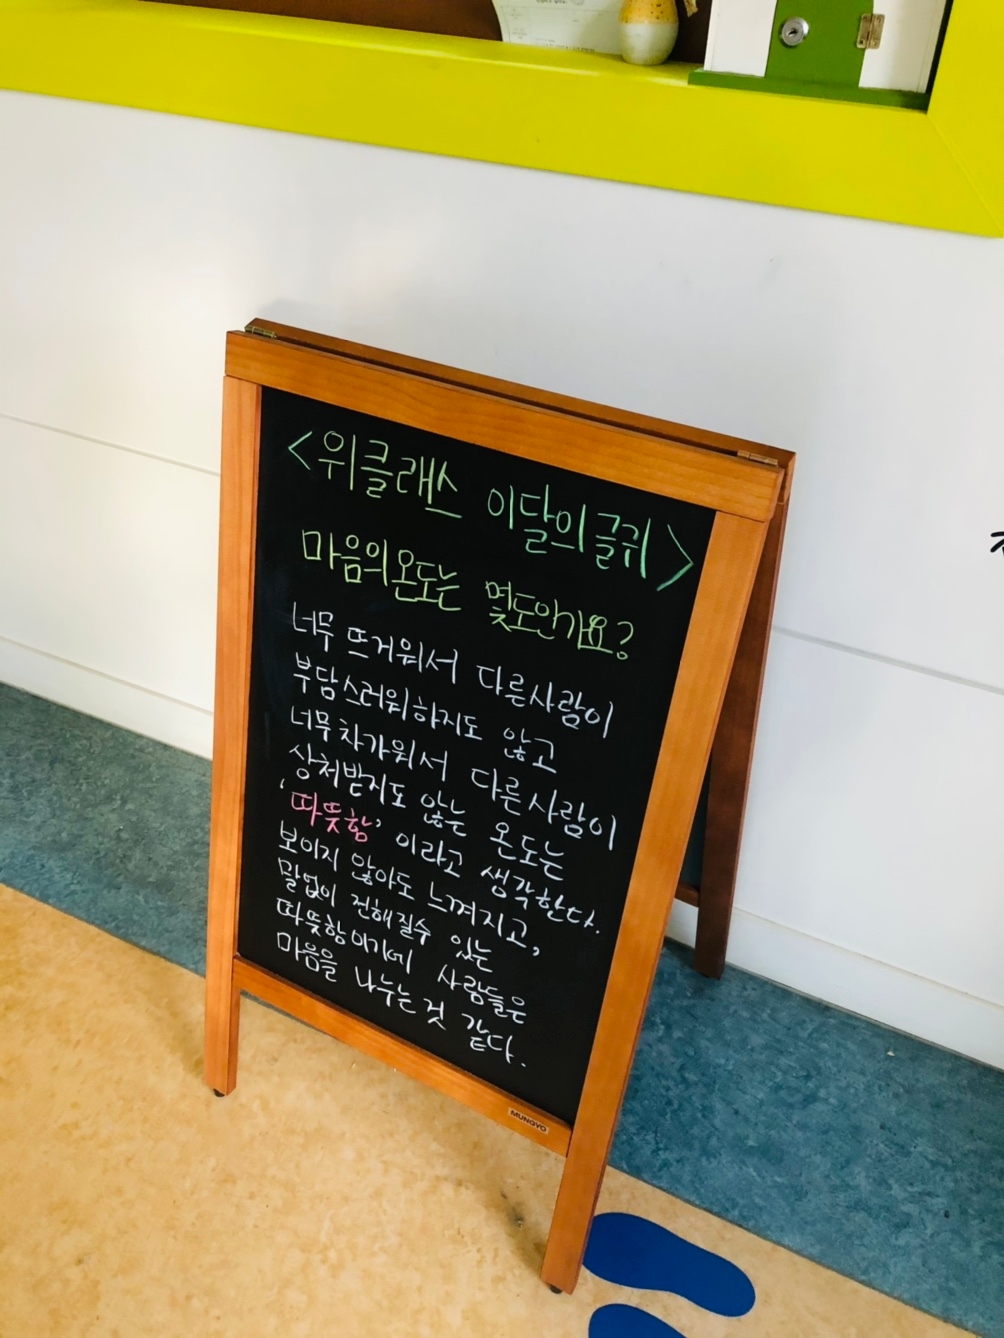 <위클래스 이달의 글귀>
마음의 온도는 몇도인가요?
너무 뜨거워서 다른사람이
부담스러워하지도 않고
너무 차가워서 다른사람이
상처받지도 않는 온도는
'따뜻함' 이라고 생각한다.
보이지 않아도 느껴지고,
말없이 전해질수 있는
따뜻함이기에 사람들은
마음을 나누는것 같다.
MUNGYO